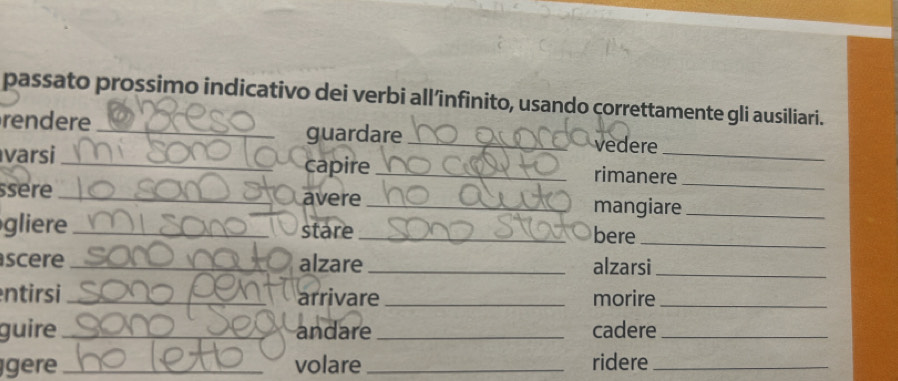 passato prossimo indicativo dei verbi all'infinito, usando correttamente gli ausiliari.
rendere ho preso guardare ho guardato vedere
varsi mi sono lavato capire ho capito rimanere
ssere Io sono stato avere ho avuto mangiare
gliere mi sono tolto stare sono stato bere
ascere sono nato alzare alzarsi
entirsi sono pentito arrivare morire
guire sono seguito andare cadere
ggere ho letto volare ridere